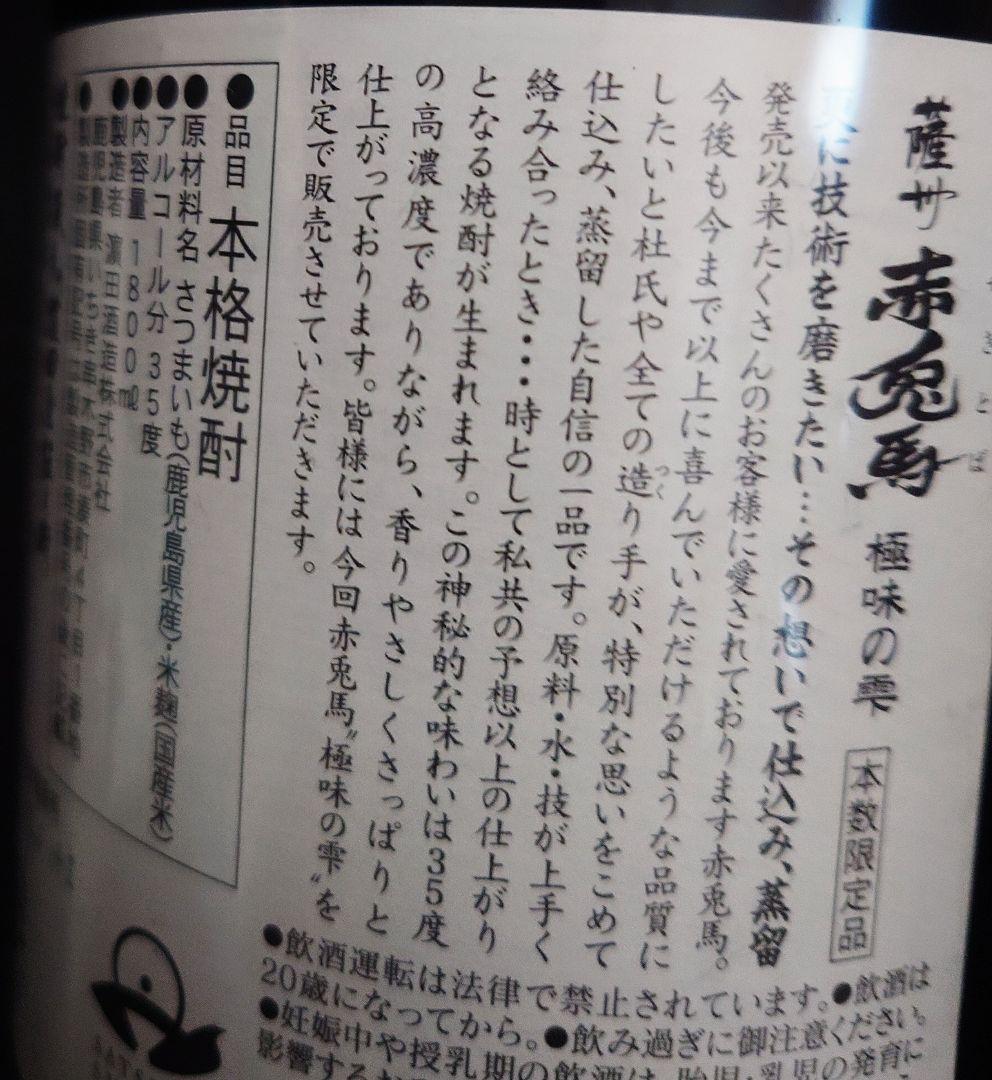 薩州 赤兎馬 極味の雫 本数限定品
せきとば
技術を磨きたい…その想いで仕込み、蒸留
発売以来たくさんのお客様に愛されております赤兎馬。
今後も今まで以上に喜んでいただけるような品質に
したいと杜氏や全ての造り手が、特別な思いをこめて
つく
仕込み、蒸留した自信の一品です。原料・水・技が上手く
絡み合ったとき・・・時として私共の予想以上の仕上がり
となる焼酎が生まれます。この神秘的な味わいは35度
の高濃度でありながら、香りやさしくさっぱりと
仕上がっております。皆様には今回赤兎馬〝極味の雫〟を
限定で販売させていただきます。
●品目 本格焼酎
●原材料名 さつまいも(鹿児島県産)・米麹(国産米)
●アルコール分 35度
●内容量 1800㎖
●製造者 濵田酒造株式会社
鹿児島県いちき串木野市湊町4丁目1番地
●製造所
●飲酒運転は法律で禁止されています。●飲酒は
20歳になってから。●飲み過ぎに御注意ください。
●妊娠中や授乳期の飲酒は、胎児・乳児の発育に
影響する